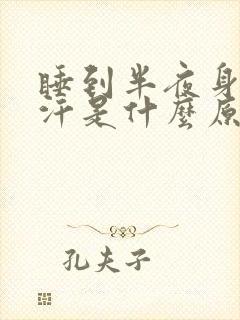 睡到半夜身
汗是什麼原
孔夫子